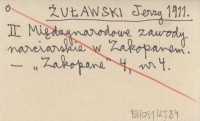 ŻUŁAWSKI Jerzy 1911.
II Międzynarodowe zawody
narciarskie w Zakopanem.
– „Zakopane” 4, nr 4.